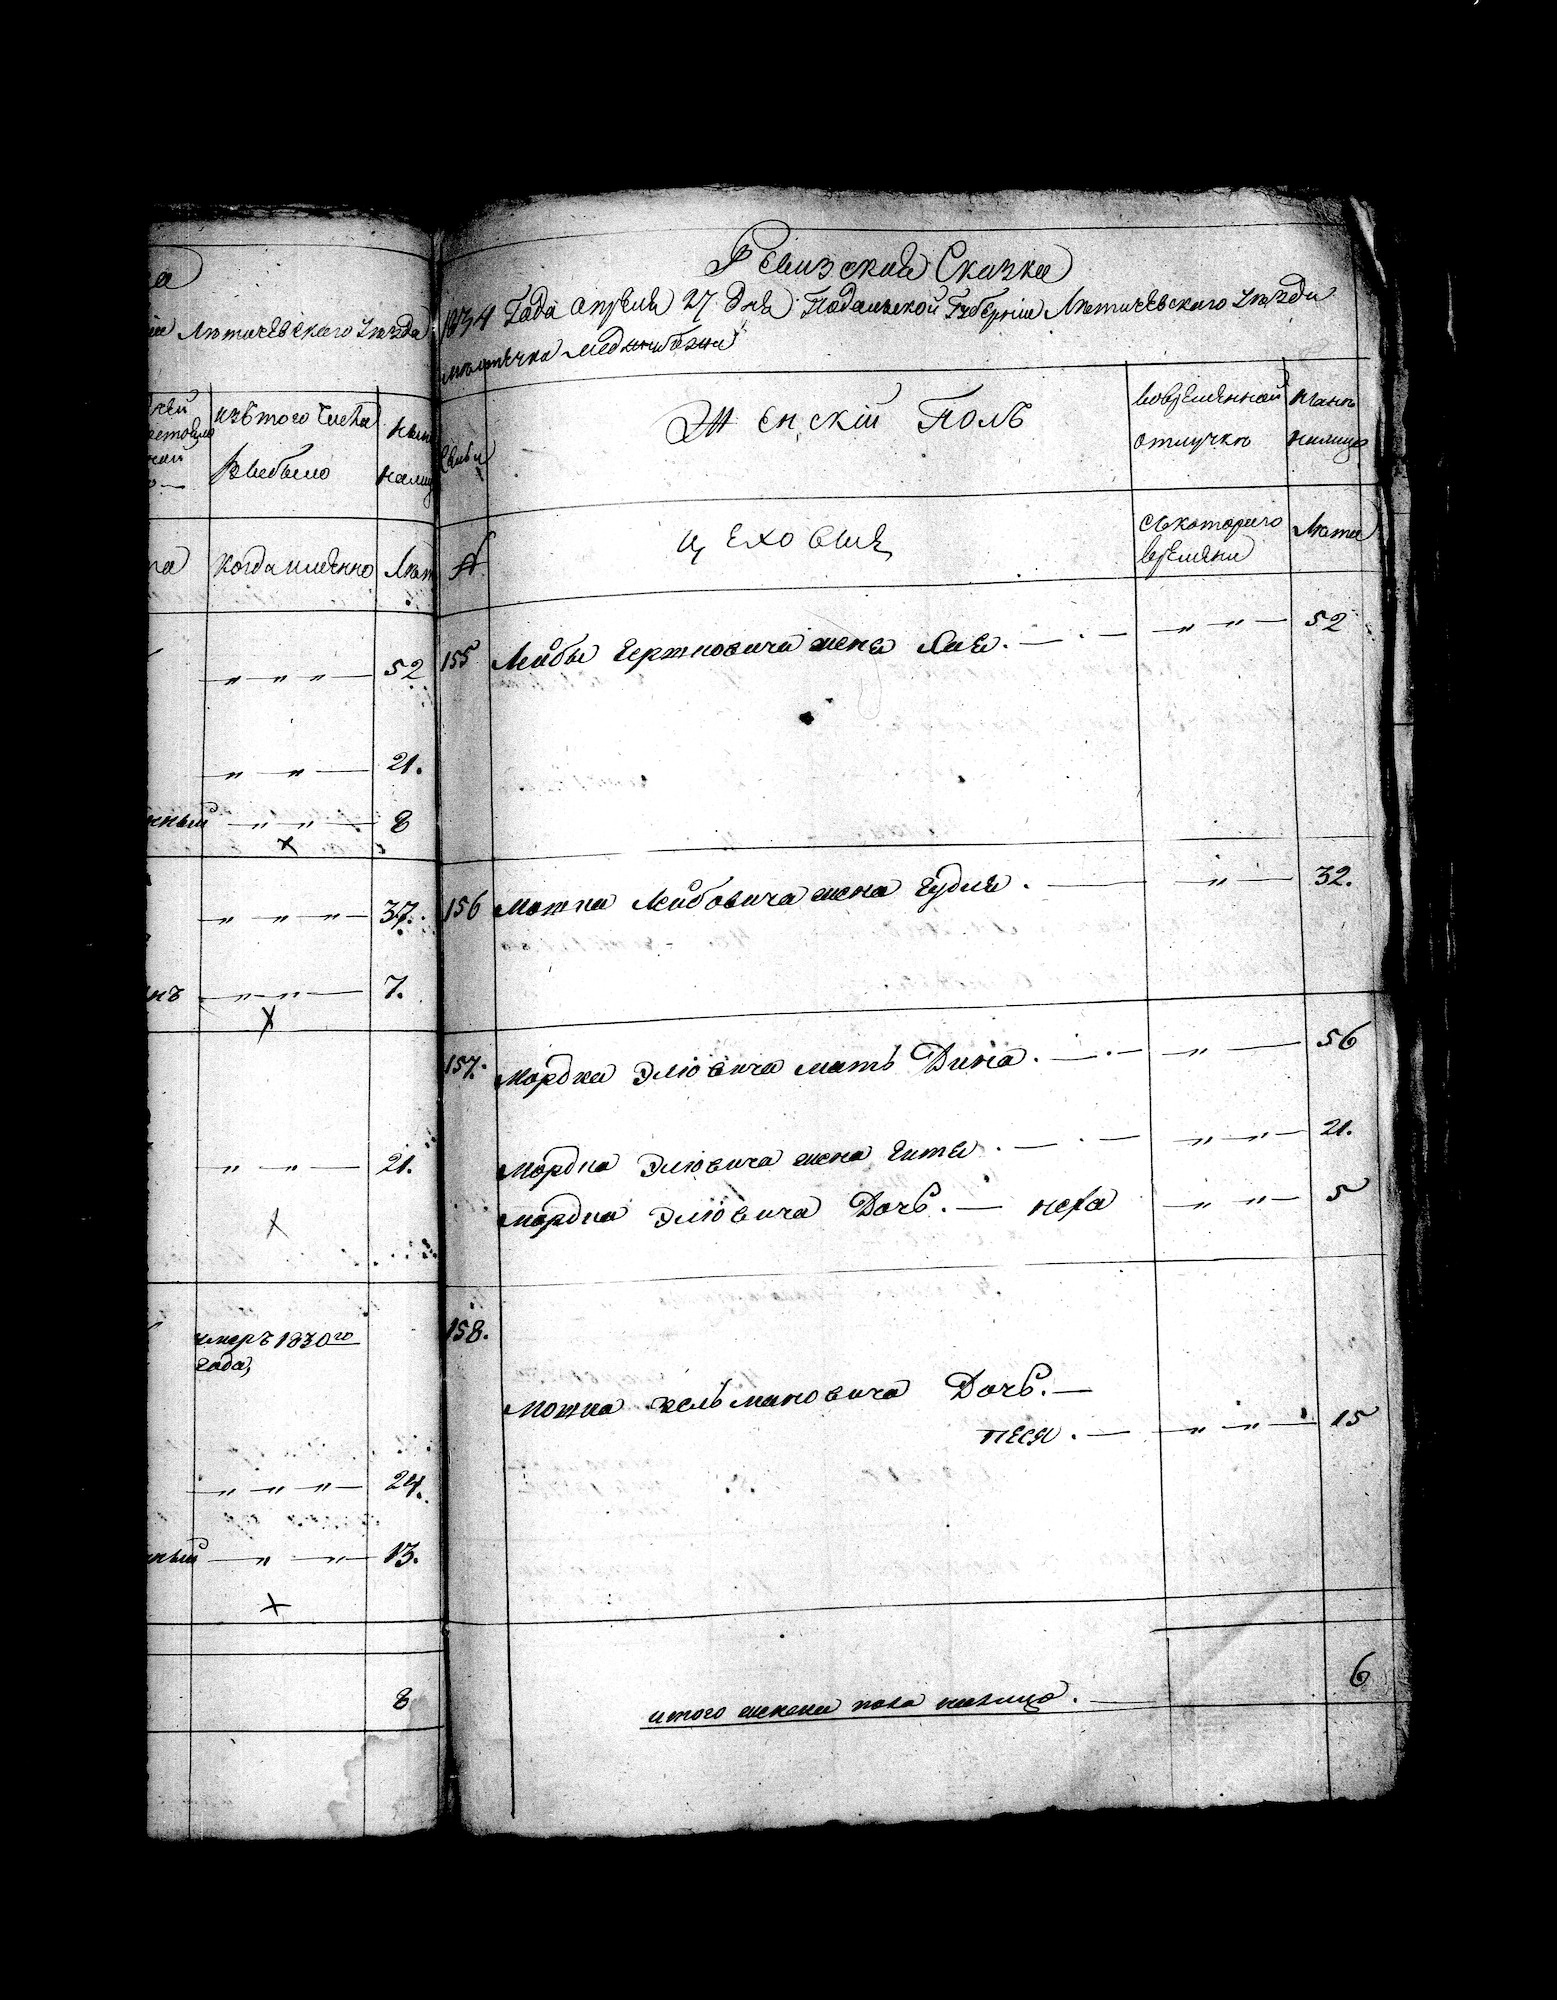 Лѣтичевскаго уѣзда
изъ того числа
Выбыло
когда именно
52
21.
8
37.
7.
21.
умеръ 1830го
года,
24.
13.
8
Ревизская Сказка
1834 Года апреля 27 Дня Подольской Губерніи Лѣтичевскаго уѣзда
мѣстечка Меджибожа
Семьи
Женскій Полъ
во временной
отлучкѣ
налицо
№
цеховые
съ котораго
времяни
Лѣта
155 Лейбы Гершковича жена Хая. — „ „ — 52
156 Мошка Лейбовича жена Гудля. — „ — 32.
157. Мордка Элювича мать Дина. — „ — 56
Мордка Элювича жена Гитя. — „ „ — 21.
Мордка Элювича Дочь. — Неха „ „ — 5
158.
Мошка Кельмановича Дочь. —
Песя. — „ „ — 15
итого женска пола налицо. — 6